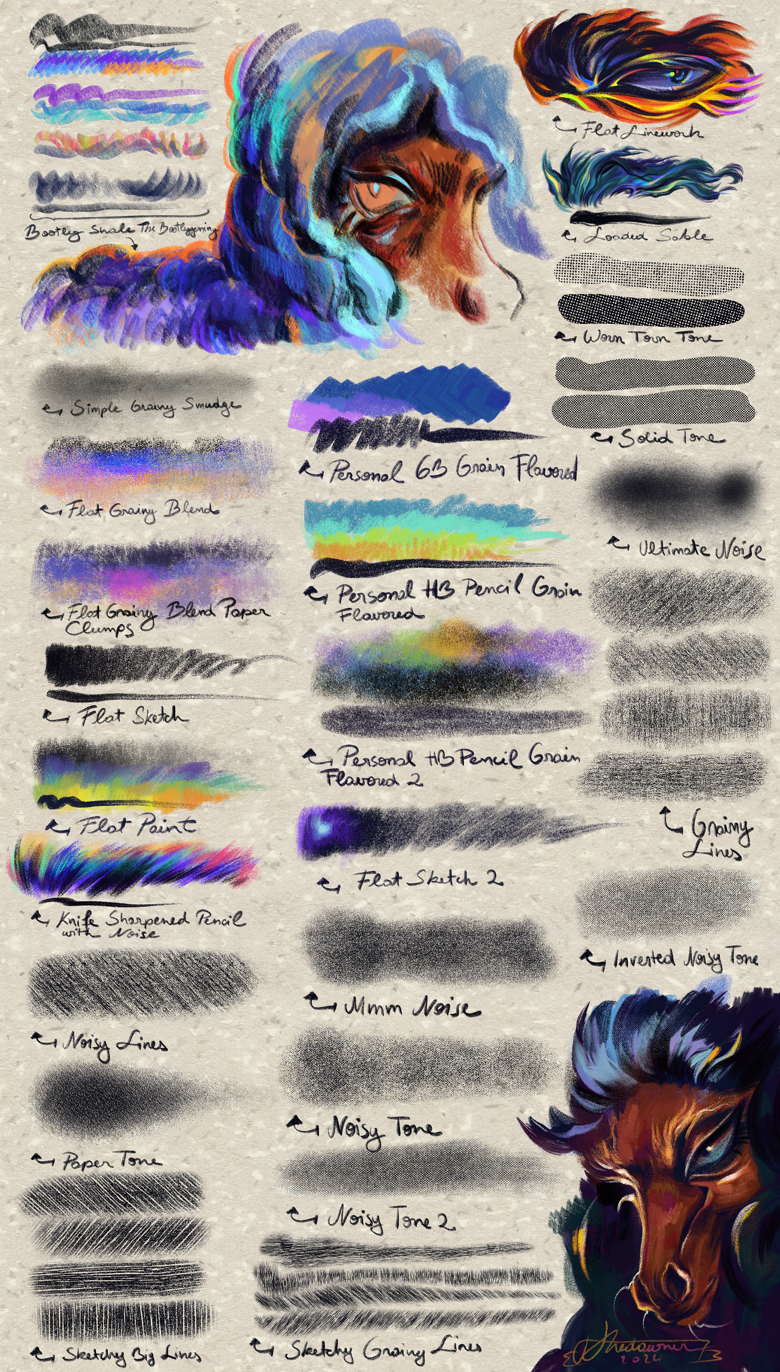 Bootleg Snale The Bootleggening
Flat Linework
Loaded Sable
Worn Torn Tone
Solid Tone
Ultimate Noise
Grainy
Lines
Inverted Noisy Tone
Simple Grainy Smudge
Flat Grainy Blend
Flat Grainy Blend Paper
Clumps
Flat Sketch
Flat Paint
Knife Sharpened Pencil
with Noise
Noisy Lines
Paper Tone
Sketchy Big Lines
Personal 6B Grain Flavored
Personal HB Pencil Grain
Flavored
Personal HB Pencil Grain
Flavored 2
Flat Sketch 2
Mmm Noise
Noisy Tone
Noisy Tone 2
Sketchy Grainy Lines